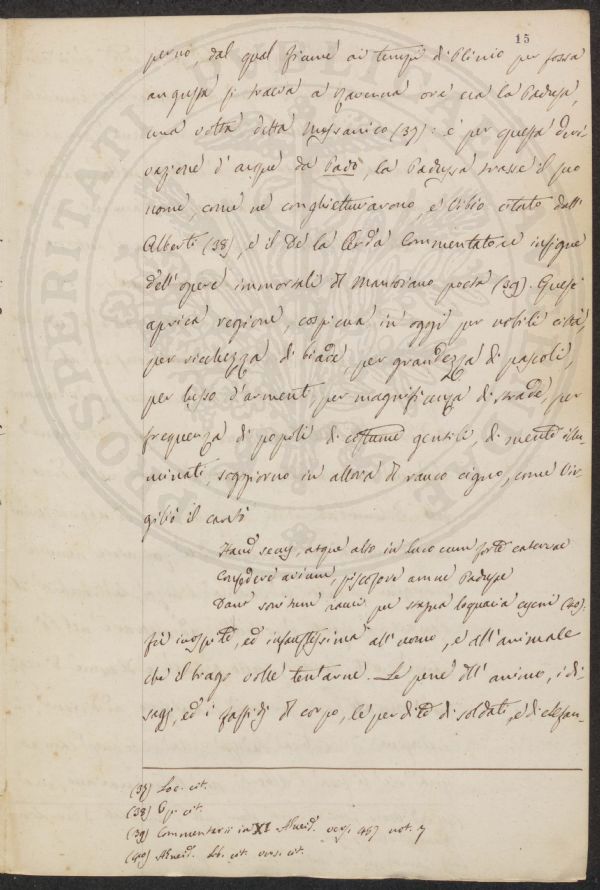 15
perno, dal qual fiume ai tempi di Plinio per fossa
angusta si traeva a Ravenna ora era la Padusa,
una volta detta Messanico (37): e per questa deri-
vazione d'acque da Pado, la Padussa trasse il suo
nome, come ne conghietturarono, e Vibio citato dall'
Alberti (38), e il De la Cerda Commentatore insigne
dell'opere immortali di Mantoano poeta (39). Quest'
aprica regione, cospicua in oggi per nobili città,
per ricchezza di biade, per grandezza di pascoli,
per lusso d'armenti, per magnificenza di strade, per
frequenza di popoli di costume gentili, di mente illu-
minati, soggiorno in allora di rauco cigno, come Vir-
gilio il cantò
Haud secus, atque alto in luco cum forte catervae
Consedere avium, piscosove amne Padusae
Dant sonitum rauci per stagna loquacia cycni (40).
fu inospite, ed infaustissima all'uomo, e all'animale
che il brago volle tentarne. Le pene dell'animo, i di-
sagj, ed i fastidj di corpo, le perdite di soldati, e di elefan-
(37) Loc. cit.
(38) Op. cit.
(39) Commentarii in XI Aeneid. vers. 457 not. 7
(40) Aeneid. Lib. cit. vers. cit.
PROSPERITATI PUBLICAE